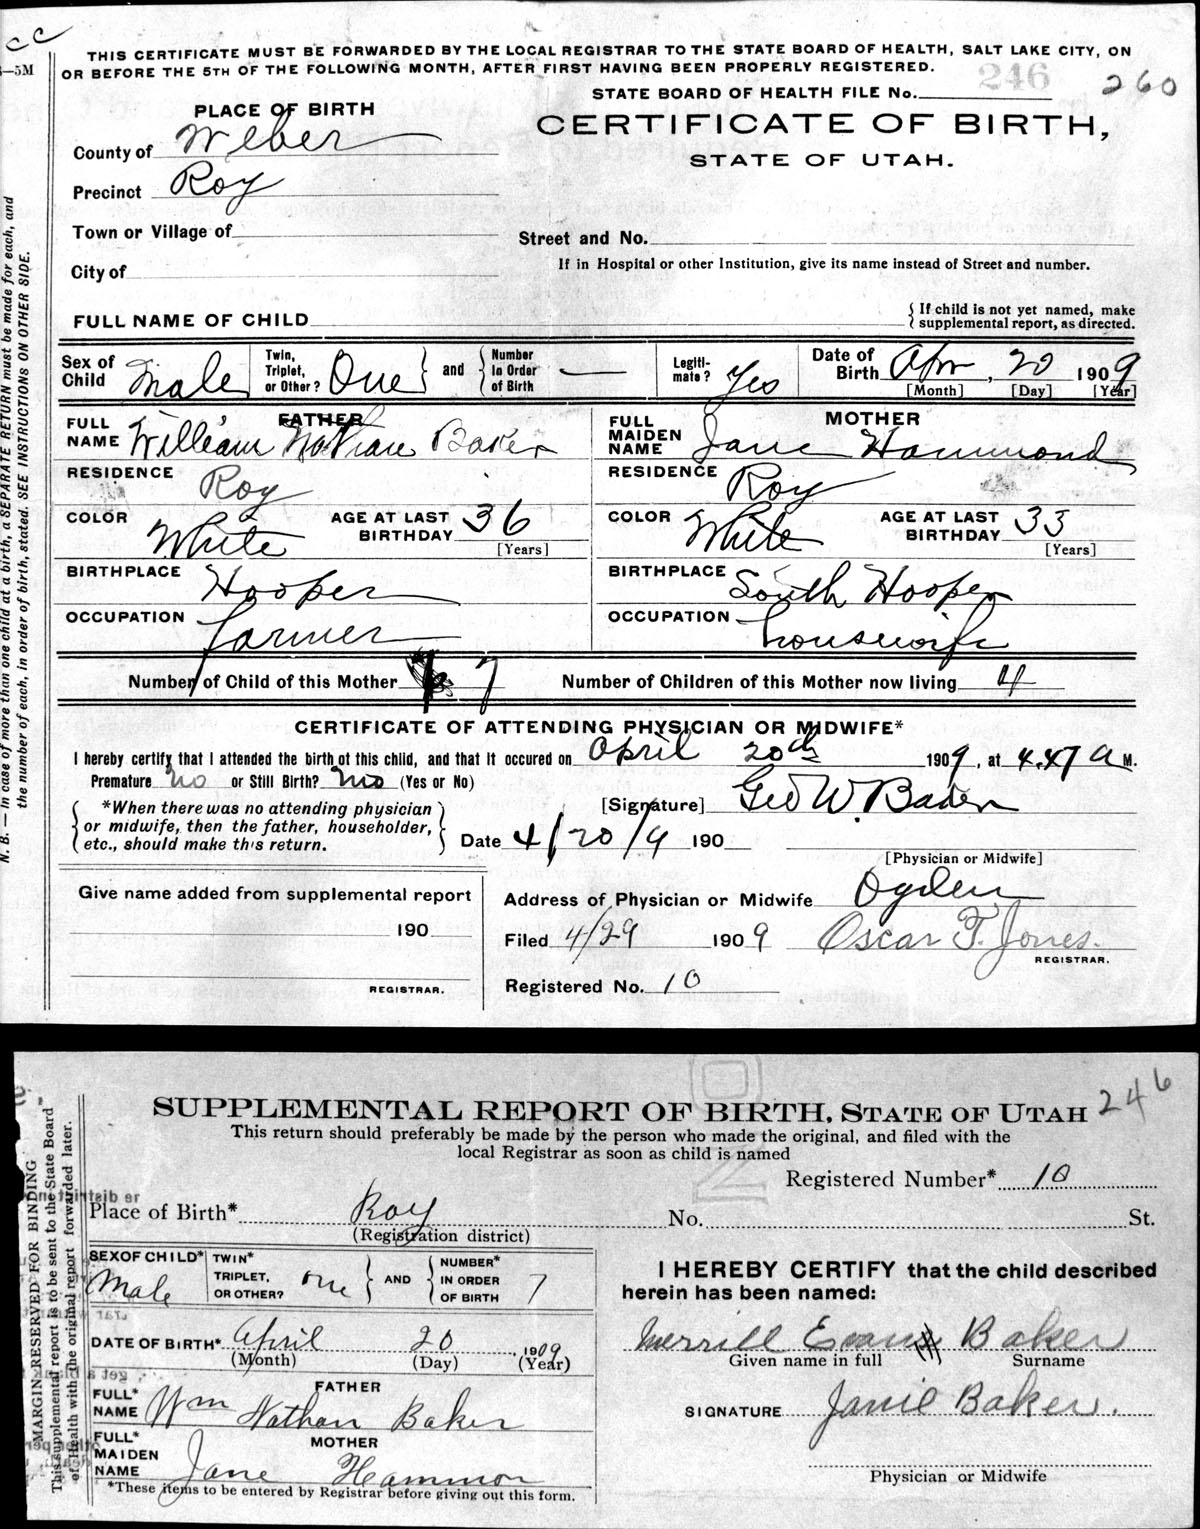 cc
—5M
THIS CERTIFICATE MUST BE FORWARDED BY THE LOCAL REGISTRAR TO THE STATE BOARD OF HEALTH, SALT LAKE CITY, ON
OR BEFORE THE 5TH OF THE FOLLOWING MONTH, AFTER FIRST HAVING BEEN PROPERLY REGISTERED.
246 260
STATE BOARD OF HEALTH FILE No.
PLACE OF BIRTH
CERTIFICATE OF BIRTH,
STATE OF UTAH.
County of Weber
Precinct Roy
Town or Village of
Street and No.
City of
If in Hospital or other Institution, give its name instead of Street and number.
FULL NAME OF CHILD
{ If child is not yet named, make
supplemental report, as directed.
Sex of Child Male
Twin, Triplet, or Other? One } and { Number In Order of Birth —
Legiti-mate? Yes
Date of Birth Apr, 20 1909
[Month] [Day] [Year]
FATHER
FULL NAME William Nathan Baker
RESIDENCE Roy
COLOR White AGE AT LAST BIRTHDAY 36 [Years]
BIRTHPLACE Hooper
OCCUPATION farmer
MOTHER
FULL MAIDEN NAME Jane Hammond
RESIDENCE Roy
COLOR White AGE AT LAST BIRTHDAY 33 [Years]
BIRTHPLACE South Hooper
OCCUPATION housewife
Number of Child of this Mother 7 Number of Children of this Mother now living 4
CERTIFICATE OF ATTENDING PHYSICIAN OR MIDWIFE*
I hereby certify that I attended the birth of this child, and that it occured on April 20th 1909, at 4.47 a M.
Premature no or Still Birth? no (Yes or No)
*When there was no attending physician
or midwife, then the father, householder,
etc., should make this return.
[Signature] Geo W. Baker
Date 4/20/9 190
[Physician or Midwife]
Give name added from supplemental report
190
REGISTRAR.
Address of Physician or Midwife Ogden
Filed 4/29 1909 Oscar F. Jones.
REGISTRAR.
Registered No. 10
N. B. — In case of more than one child at a birth, a SEPARATE RETURN must be made for each, and
the number of each, in order of birth, stated. SEE INSTRUCTIONS ON OTHER SIDE.
246
SUPPLEMENTAL REPORT OF BIRTH, STATE OF UTAH
This return should preferably be made by the person who made the original, and filed with the
local Registrar as soon as child is named
Registered Number* 10
Place of Birth* Roy No. St.
(Registration district)
SEX OF CHILD* Male
TWIN* TRIPLET, OR OTHER? one } AND { NUMBER* IN ORDER OF BIRTH 7
DATE OF BIRTH* April 20, 1909
(Month) (Day) (Year)
FATHER
FULL* NAME Wm Nathan Baker
MOTHER
FULL* MAIDEN NAME Jane Hammon
*These items to be entered by Registrar before giving out this form.
I HEREBY CERTIFY that the child described
herein has been named:
Merrill Evan Baker
Given name in full Surname
SIGNATURE Janie Baker.
Physician or Midwife
MARGIN RESERVED FOR BINDING
This supplemental report is to be sent to the State Board
of Health with the original report forwarded later.